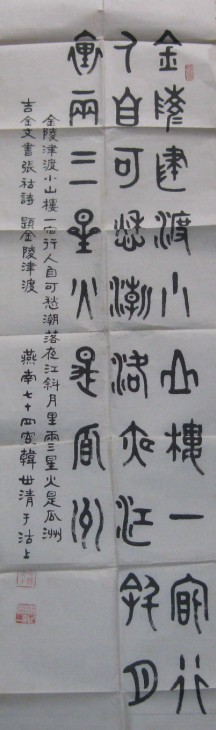 金陵津渡小山樓一宿行
人自可愁潮落夜江斜月
裏兩三星火是瓜洲
金陵津渡小山樓一宿行人自可愁潮落夜江斜月里兩三星火是瓜洲
吉金文書張祜詩 題金陵津渡 燕南七十四叟韓世清于沽上